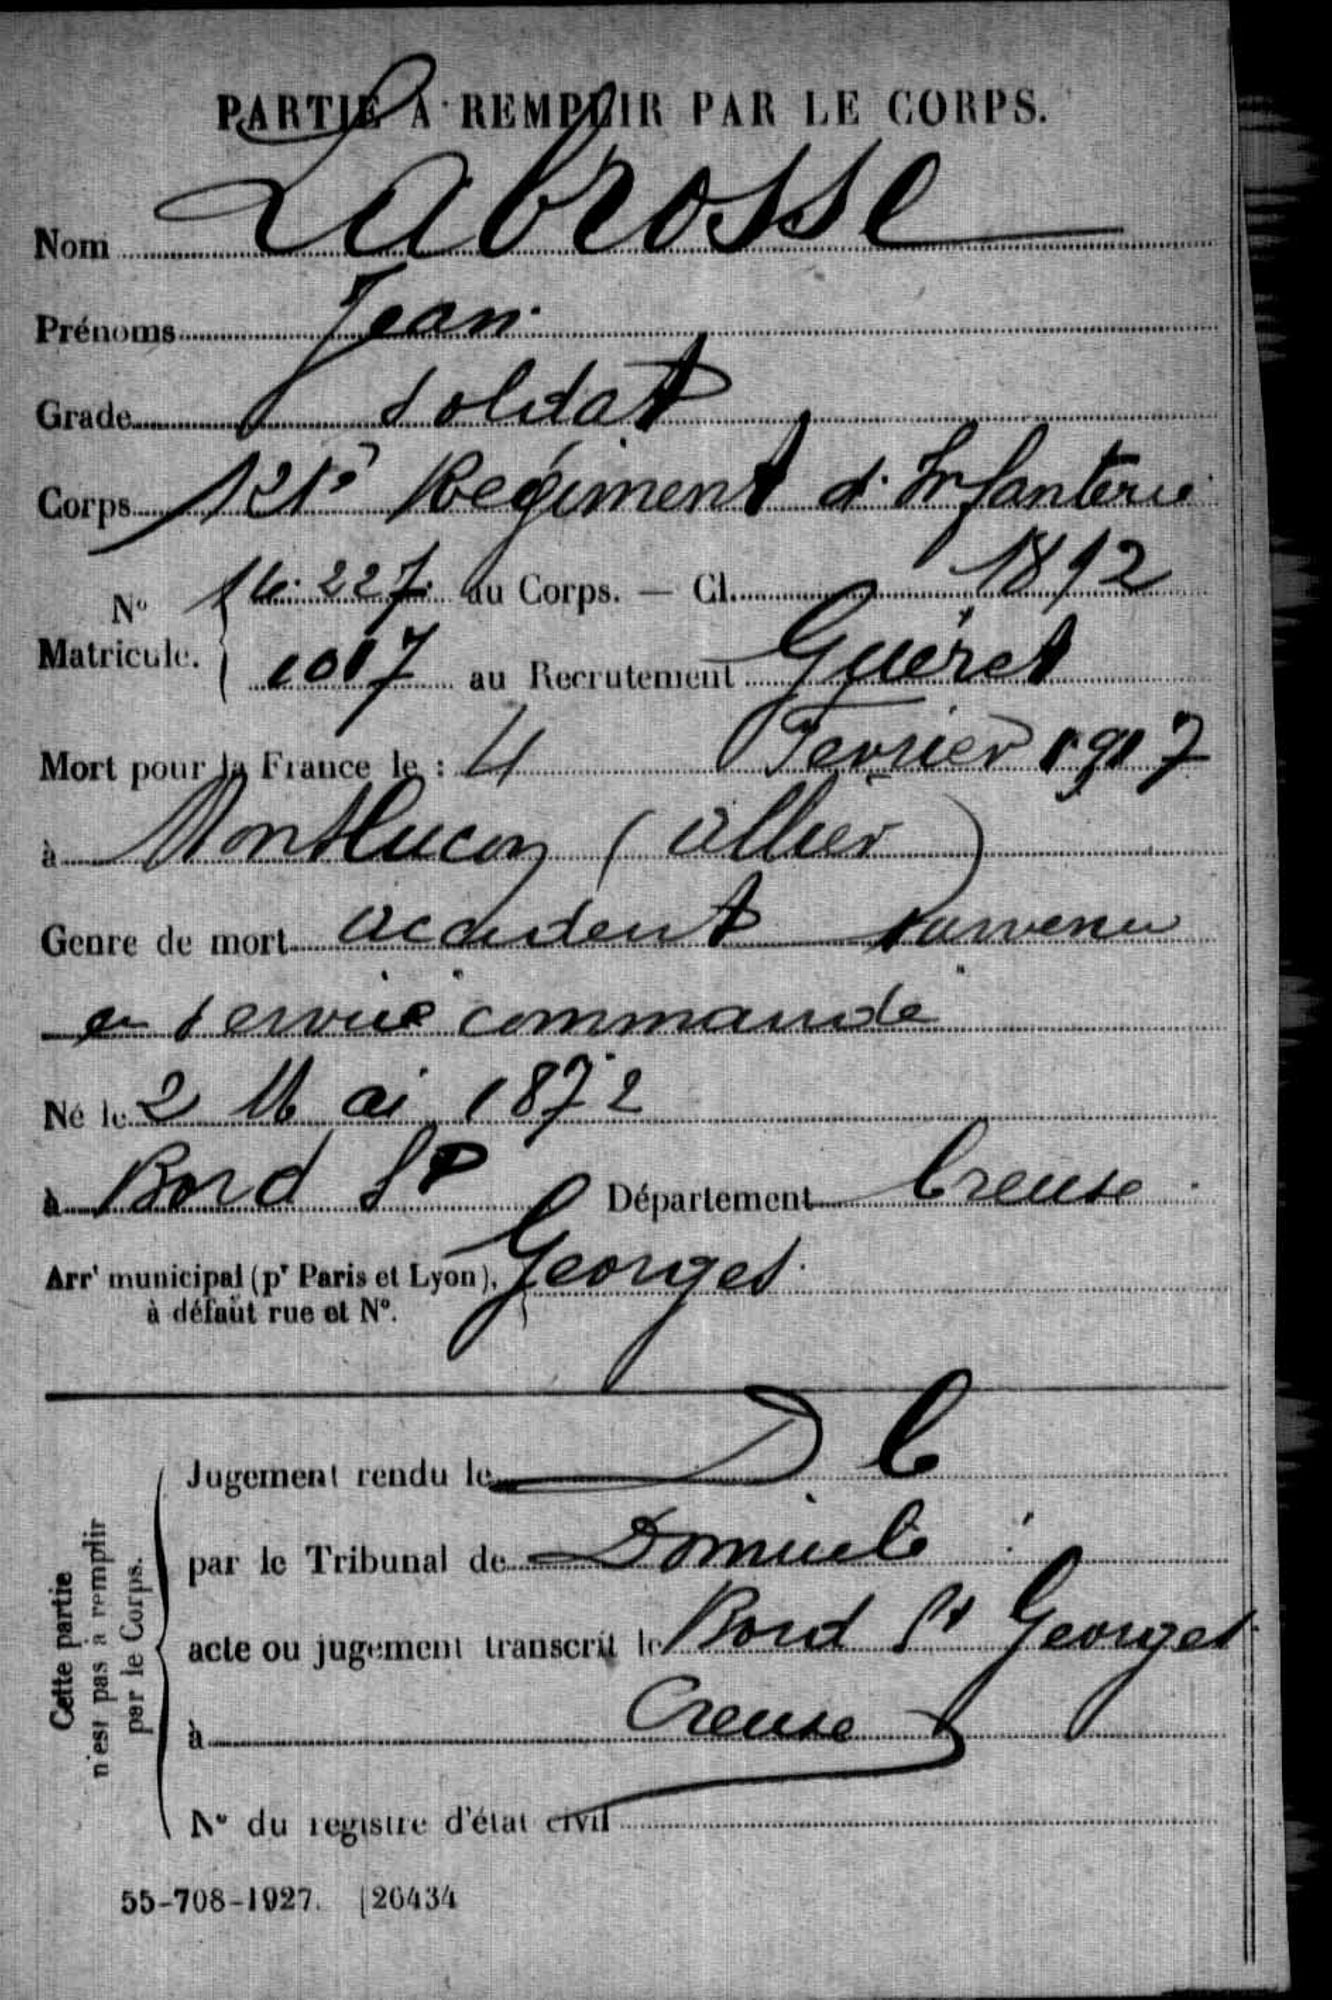 PARTIE À REMPLIR PAR LE CORPS.
Nom Labrosse
Prénoms Jean
Grade soldat
Corps 121e Régiment d'Infanterie
No Matricule. 16.227 au Corps. — Cl. 1892
1017 au Recrutement Guéret
Mort pour la France le : 4 Fevrier 1917
à Montlucon (Allier)
Genre de mort accident survenu
en service commandé
Né le 2 Mai 1872
à Bord St Département Creuse
Arrt municipal (pr Paris et Lyon), Georges
à défaut rue et No.
Cette partie
n'est pas à remplir
par le Corps.
Jugement rendu le D C
par le Tribunal de Domicile
acte ou jugement transcrit le Bord St Georges
à Creuse
No du registre d'état civil
55-708-1927. [26434